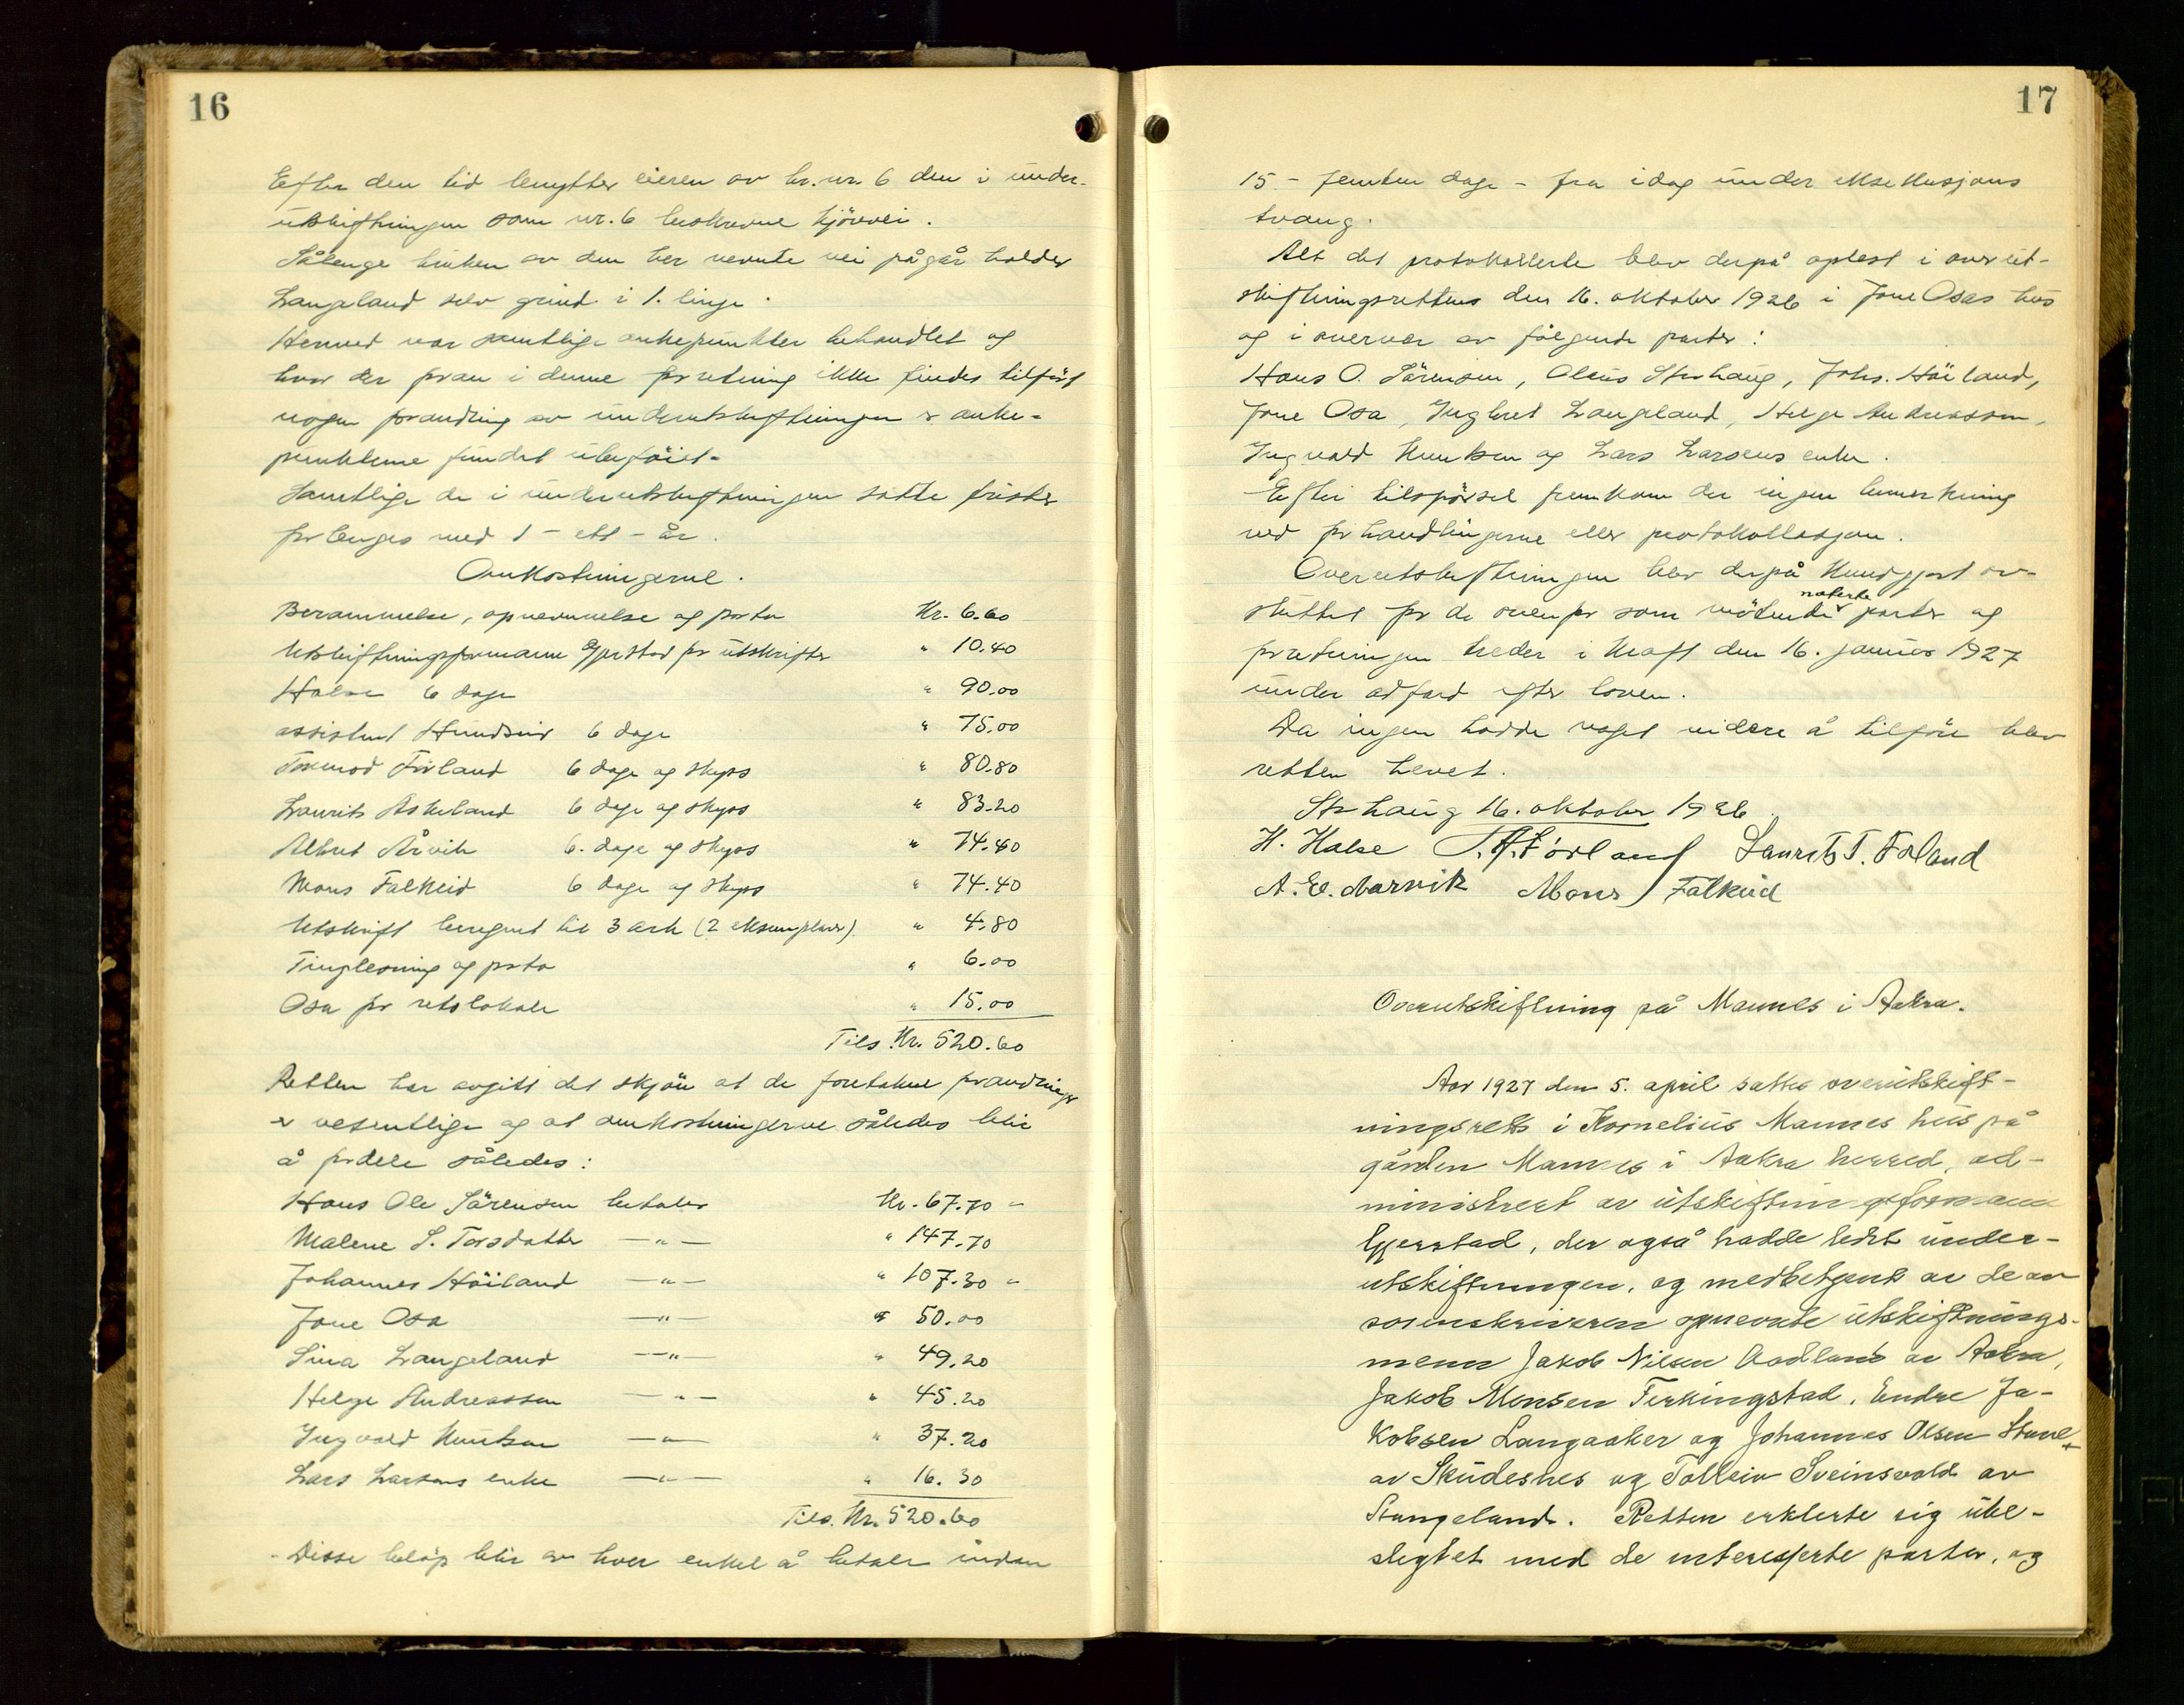 16
Efter den tid benytter eieren av br. nr. 6 den i under-
utskiftningen som nr. 6 beskrevne kjörvei.
Sålenge bruken av den her nevnte vei pågår holder
Langeland selv grind i 1. linje.
Hermed var samtlige ankepunkter behandlet og
hvor der foran i denne forretning ikke findes tilfört
nogen forandring av underutskiftningen er anke-
punktene fundet ubeföiet.
Samtlige de i underutskiftningen satte frister
forlenges med 1 - ett - år.
Omkostningerne.
Berammelse, opnevnelse og porto Kr. 6.60
Utskiftningsformann Gjerstad for utskrifter " 10.40
Halse 6 dage " 90.00
assistent 6 dage " 75.00
Tormod Förland 6 dage og skyss " 80.80
Laurits Askeland 6 dage og skyss " 83.20
Albert Årvik 6. dage og skyss " 74.40
Mons Falkeid 6 dage og skyss " 74.40
Utskrift beregnet til 3 ark (2 eksemplarer) " 4.80
Tinglesning og porto " 6.00
Osa for retslokale " 15.00
Tils. Kr. 520.60
Retten har avgitt det skjön at de foretakne forandringer
er vesentlige og at omkostningerne således blir
å fordele således:
Hans Ole Sörensen betaler Kr. 67.70 -
Malene S. Torsdatter —"— " 147.70
Johannes Höiland —"— " 107.30 -
Jone Osa —"— " 50.00
Sina Langeland —"— " 49.20
Helge Andreassen —"— " 45.20
Ingvald Knutsen —"— " 37.20
Lars Larsens enke —"— " 16.30
Tils. Kr. 520.60
- Disse belöp blir av hver enkel å betale indan
17
15 - femten dage - fra idag under eksekusjons
tvang.
Alt det protokollerte blev derpå oplest i overut-
skiftningsrettens den 16. oktober 1926 i Jone Osas hus
og i overvær av følgende parter:
Hans O. Sörensen, Oleus Storhaug, Johs. Höiland,
Jone Osa, Ingbret Langeland, Helge Andreassen,
Ingvald Knutsen og Lars Larsens enke.
Efter tilspörsel fremkom der ingen bemerkning
ved forhandlingerne eller protokollasjonen.
Overutskiftningen blev derpå kundgjort av-
sluttet for de ovenfor som mötende noterte parter og
forretningen treder i kraft den 16. januar 1927
under adferd efter loven.
Da ingen hadde noget videre å tilföre blev
retten hevet.
Storhaug 16. oktober 1926
H. Halse T. A. Förland Laurits T. Förland
A. E. Aarvik Mons Falkeid
Overutskiftning på Mannes i Aakra.
Aar 1927 den 5. april sattes overutskift-
ningsrett i Kornelius Mannes hus på
gården Mannes i Aakra herred, ad-
ministrert av utskiftningsformann
Gjerstad, der også hadde ledet under-
utskiftningen, og medbetjent av de av
sorenskriveren opnevnte utskiftnings-
menn Jakob Nilsen Aadland av Aakra,
Jakob Monsen Ferkingstad, Endre Ja-
kobsen Langaaker og Johannes Olsen
av Skudesnes og Tolleiv Sveinsvold av
Stangeland. Retten erklerte sig ube-
slegtet med de interesserte parter, og